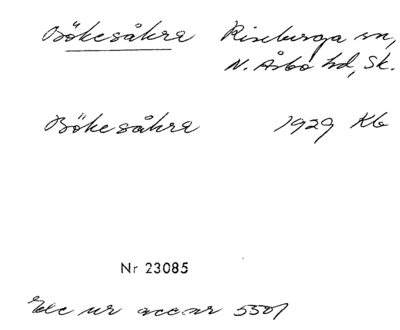 Bökesåkra Riseberga sn,
N. Åsbo hd, Sk.
Bökesåkra 1929 Kb
Nr 23085
Exc ur acc nr 5501